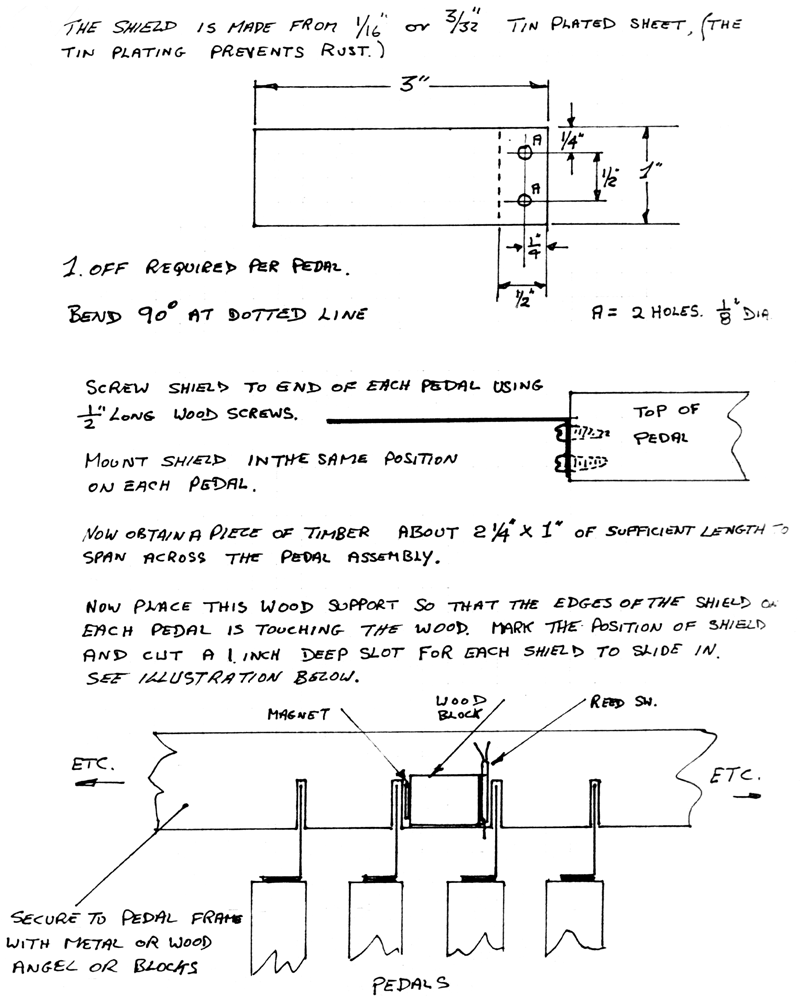 THE SHIELD IS MADE FROM 1/16" or 3/32" TIN PLATED SHEET, (THE
TIN PLATING PREVENTS RUST.)
3"
A
1/4"
1/2"
1"
A
1/4"
1/2"
1. OFF REQUIRED PER PEDAL.
BEND 90° AT DOTTED LINE
A = 2 HOLES. 1/8" DIA
SCREW SHIELD TO END OF EACH PEDAL USING
1/2" LONG WOOD SCREWS.
TOP OF
PEDAL
MOUNT SHIELD IN THE SAME POSITION
ON EACH PEDAL.
NOW OBTAIN A PIECE OF TIMBER ABOUT 2 1/4" X 1" OF SUFFICIENT LENGTH TO
SPAN ACROSS THE PEDAL ASSEMBLY.
NOW PLACE THIS WOOD SUPPORT SO THAT THE EDGES OF THE SHIELD
EACH PEDAL IS TOUCHING THE WOOD. MARK THE POSITION OF SHIELD
AND CUT A 1 INCH DEEP SLOT FOR EACH SHIELD TO SLIDE IN.
SEE ILLUSTRATION BELOW.
MAGNET
WOOD
BLOCK
REED SW.
ETC.
ETC.
SECURE TO PEDAL FRAME
WITH METAL OR WOOD
ANGEL OR BLOCKS
PEDALS